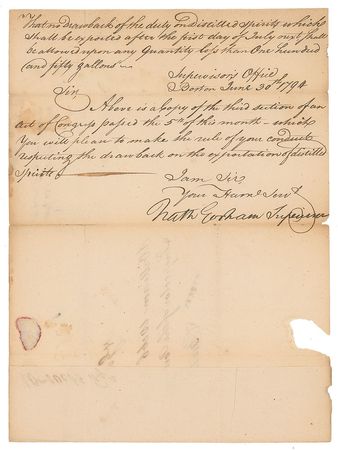 That no drawback of the duty on distilled spirits which
shall be exported after the first day of July next shall
be allowed upon any Quantity less than One hundred
and fifty gallons.
Supervisors Office
Boston June 30th 1794
Sir
Above is a Copy of the third section of an
act of Congress passed the 5th of this month which
You will please to make the rule of your conduct
respecting the drawback on the exportation of distilled
spirits
I am Sir
Your Huml Servt
Nath Gorham Supervisor